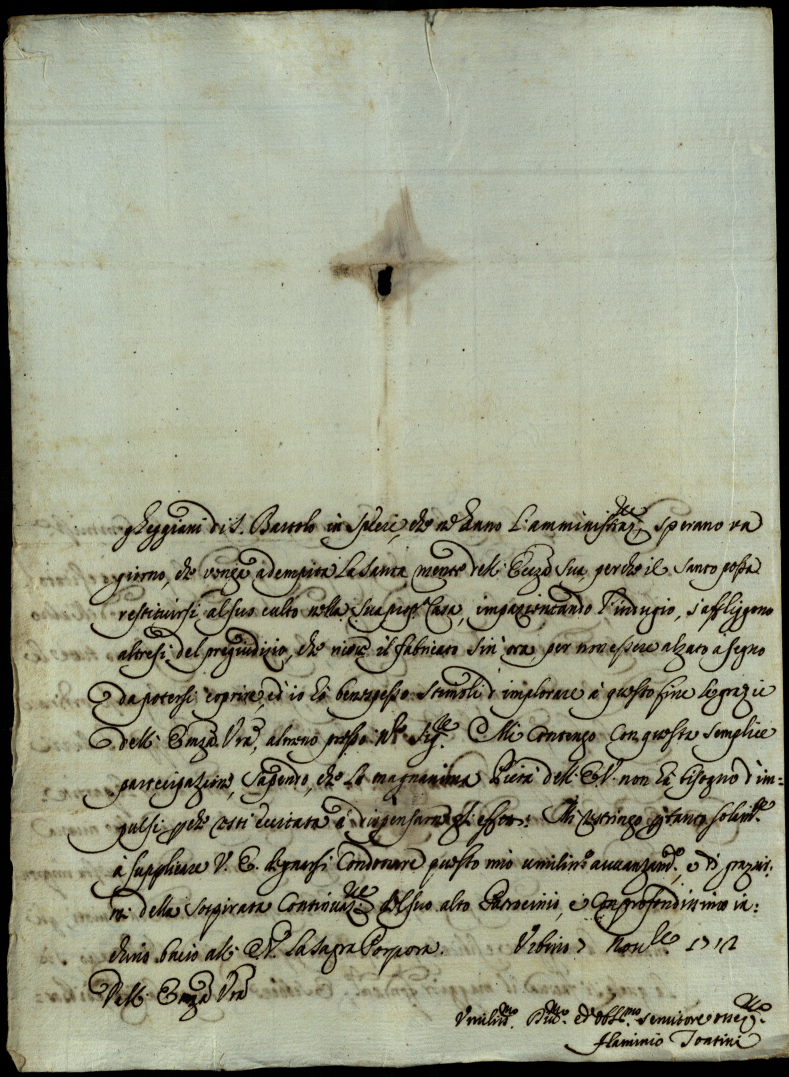 gl'eggiani di S. Bartolo in Spleri, che n'hanno l'amministraz.ne sperano va
giorno, che venga adempita la santa mente dell' Em.za Sua, perche il Santo possa
restituirsi al suo culto nella sua prop.a Casa, impazientando l'indugio, s'affliggono
altresi del pregiudizio, che riceve il fabricato sin' ora, per non essere alzato a segno
da potersi coprire, ed io hò ben spesso stimoli d'implorare à questo fine le grazie
dell' Em.za V'ra, almeno presso N'ro Sig.re. Mi contengo con questa semplice
partecipazione, sapendo, che la magnanima Pietà dell' E.V. non hà bisogno d'im=
pulsi, perche resti eccitata à dispensarne gl'effetti: Mi restringo p. tanto solam.te
à supplicare V. E. degnarsi condonare questo mio umiliss.o avvanzam.to, e di graziar:
mi della sospirata continuaz.ne del suo alto Patrocinio, e con profondissimo in=
chino bacio all' E.V. la Sagra Porpora. Urbino 7 Nov.bre 1712
Dell' Em.za V'ra
Umiliss.mo Div.mo ed Obbl.mo servitore osseq.mo
Flaminio Tontini